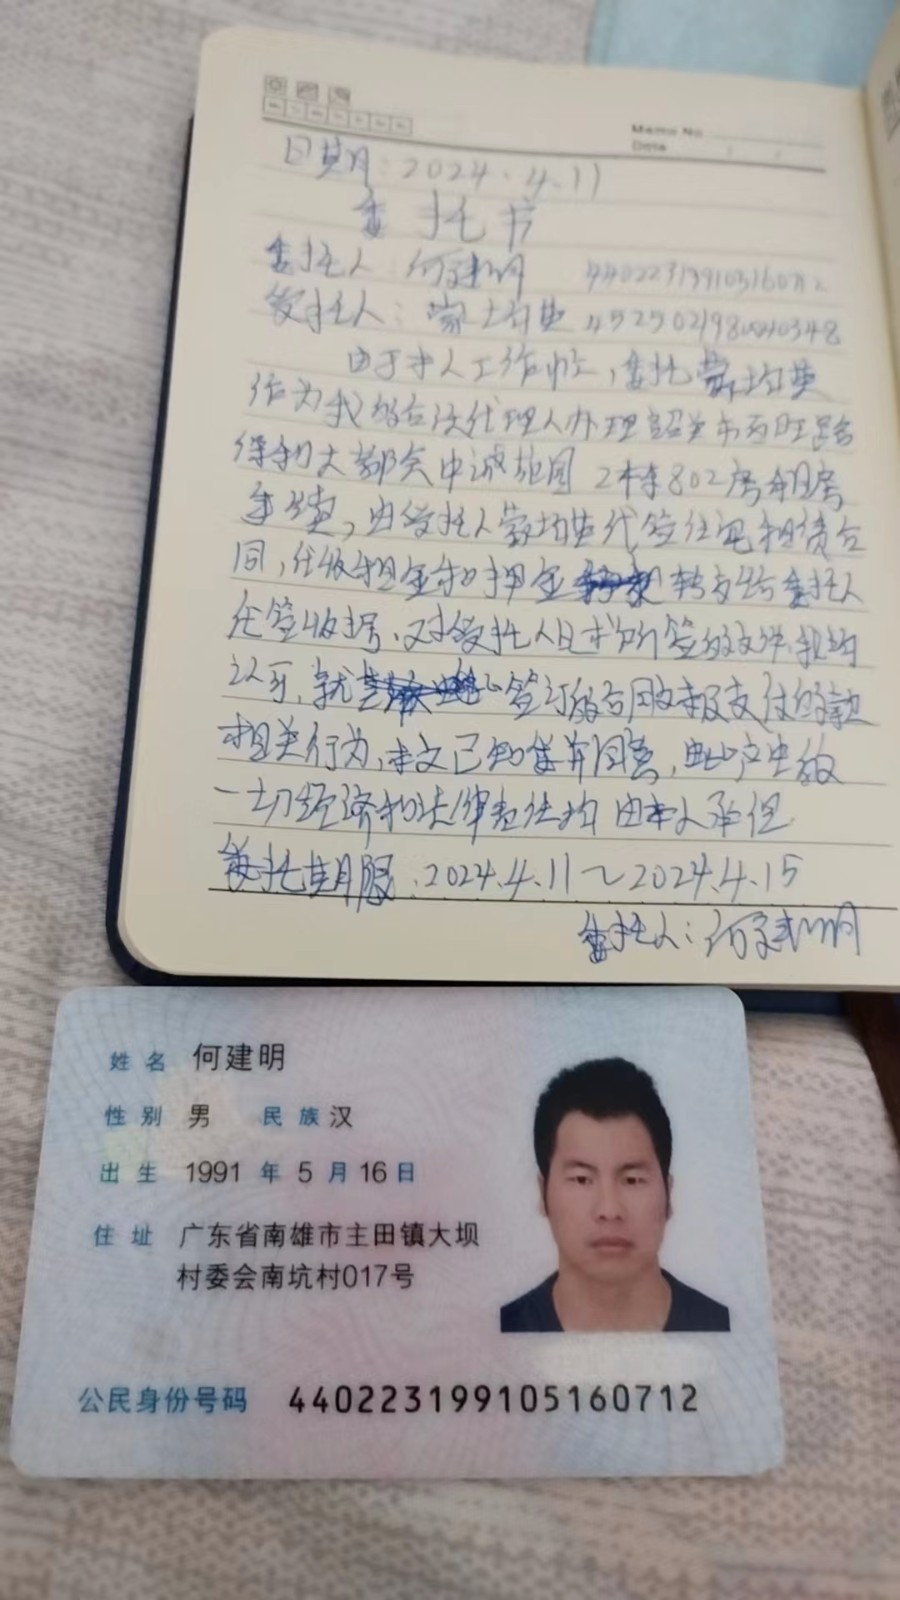 Memo No.
Date
日期:2024.4.11
委托书
委托人 何建明 440223199105160712
受托人: 蒙
由于本人工作忙,委托蒙
作为我的合法代理人办理韶关市百旺路
保利大都会中诚花园 2栋802房租房
手续,由受托人蒙 代签住宅租赁合
同,代收租金和押金 转交给委托人
代签收据。对受托人 所签的文件,我均
认可,就 签订的合同 支付的款
相关行为,本 已知 并同意,由此产生的
一切经济和法律责任均由本人承但
委托期限:2024.4.11~2024.4.15
委托人:何建明
姓名 何建明
性别 男 民族 汉
出生 1991 年 5 月 16 日
住址 广东省南雄市主田镇大坝
村委会南坑村017号
公民身份号码 440223199105160712